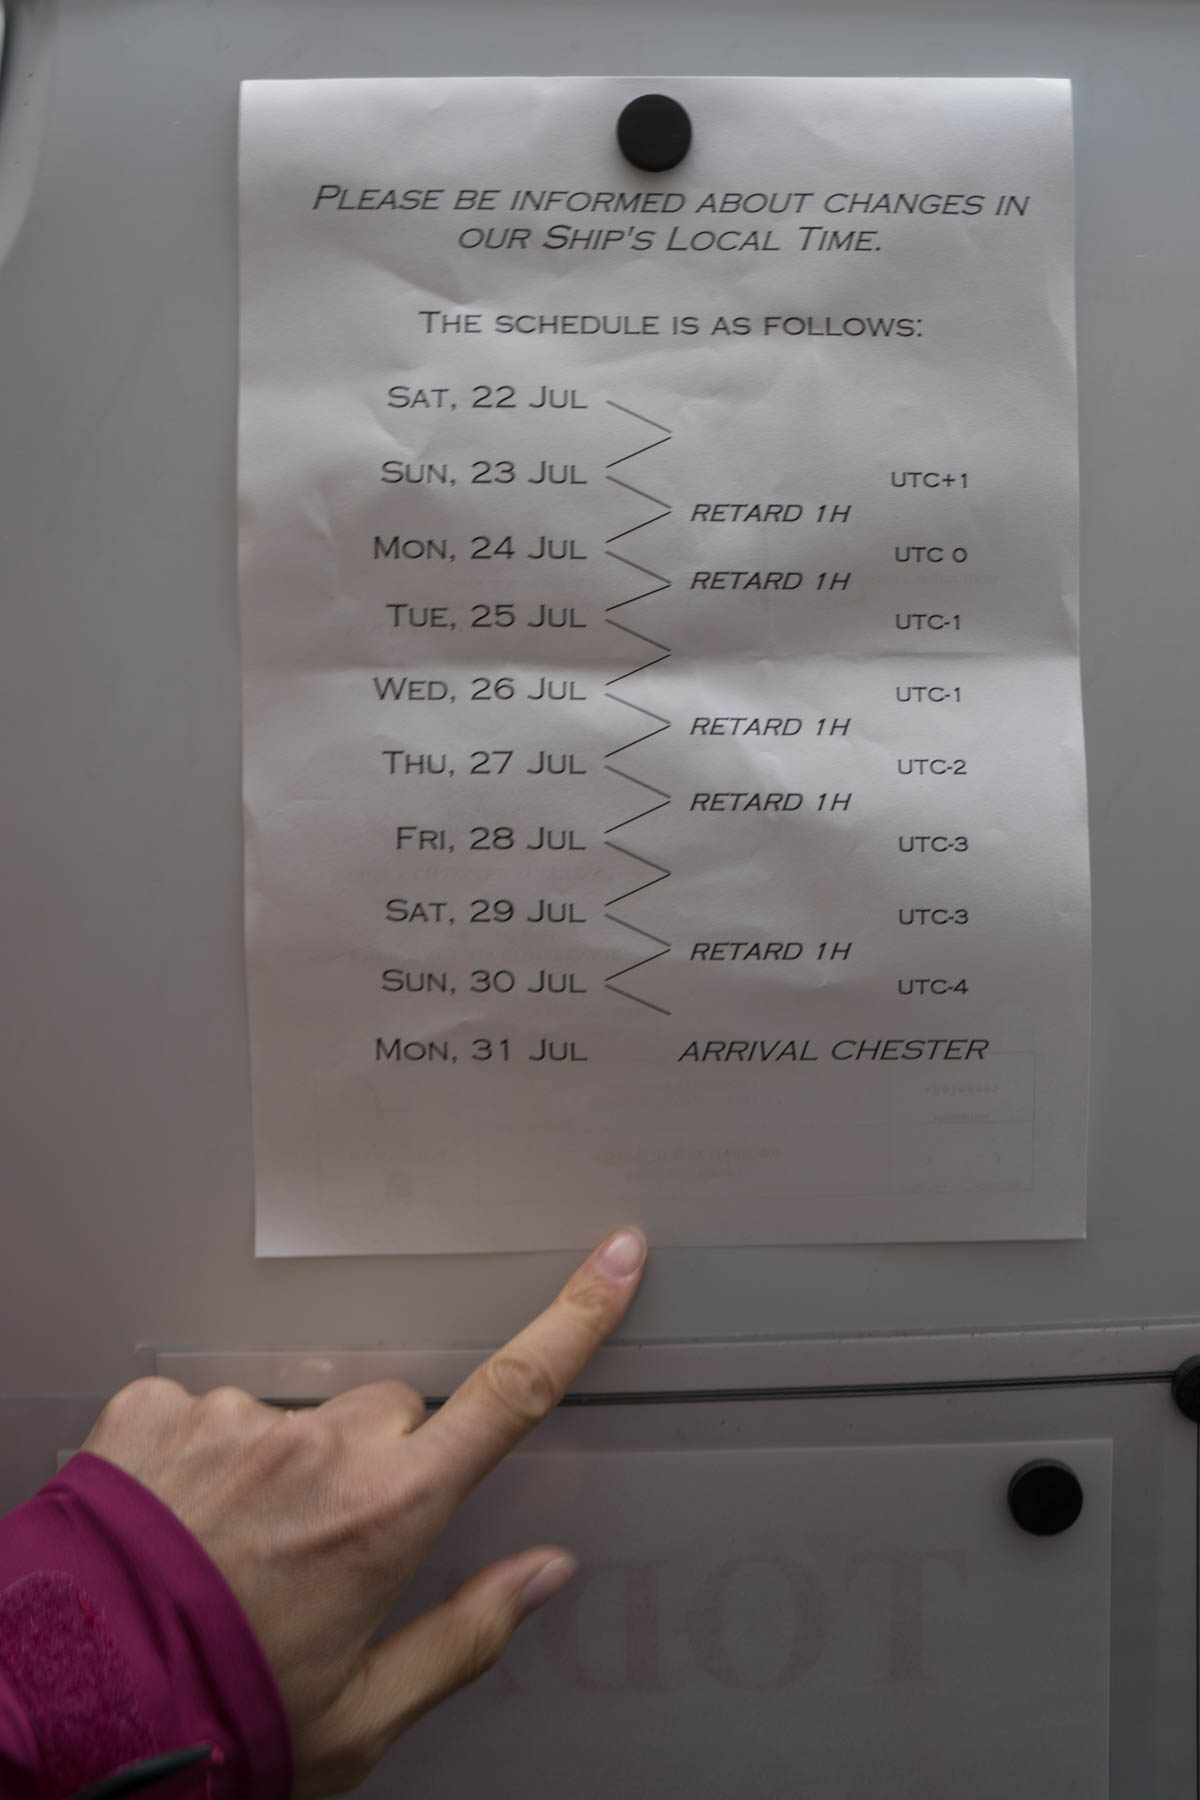 PLEASE BE INFORMED ABOUT CHANGES IN
OUR SHIP'S LOCAL TIME.
THE SCHEDULE IS AS FOLLOWS:
SAT, 22 JUL
SUN, 23 JUL UTC+1
RETARD 1H
MON, 24 JUL UTC 0
RETARD 1H
TUE, 25 JUL UTC-1
WED, 26 JUL UTC-1
RETARD 1H
THU, 27 JUL UTC-2
RETARD 1H
FRI, 28 JUL UTC-3
SAT, 29 JUL UTC-3
RETARD 1H
SUN, 30 JUL UTC-4
MON, 31 JUL ARRIVAL CHESTER